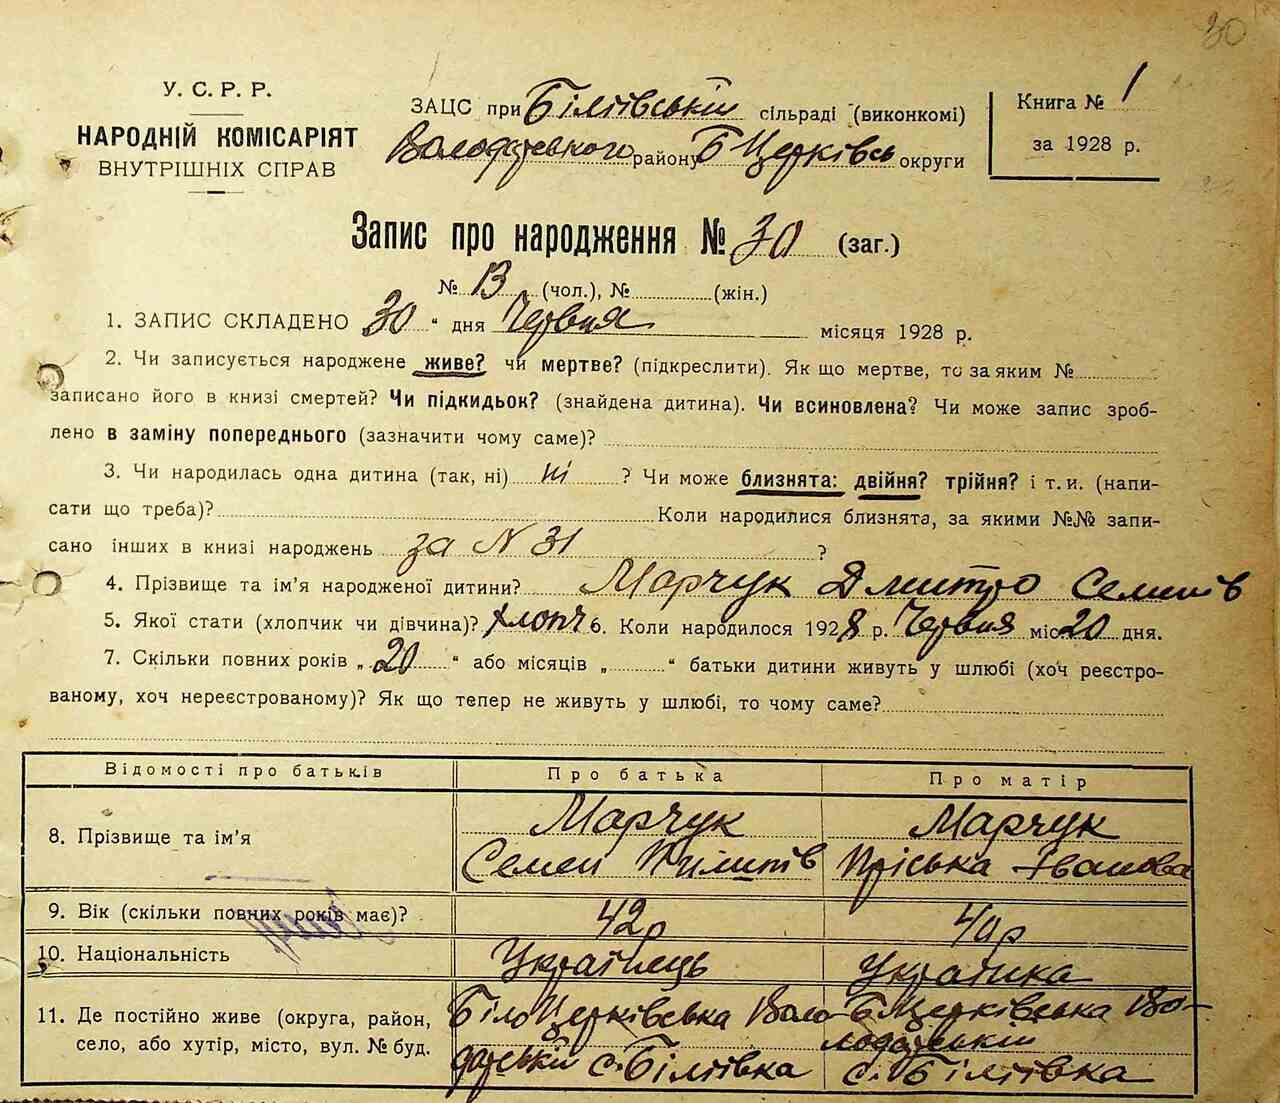 30
У. С. Р. Р.
НАРОДНІЙ КОМІСАРІЯТ
ВНУТРІШНІХ СПРАВ
ЗАЦС при Біліївській сільраді (виконкомі)
Володарського району Б Церківсь округи
Книга № 1
за 1928 р.
Запис про народження № 30 (заг.)
№ 13 (чол.), № (жін.)
1. ЗАПИС СКЛАДЕНО 30 " дня Червня місяця 1928 р.
2. Чи записується народжене живе? чи мертве? (підкреслити). Як що мертве, то за яким №
записано його в книзі смертей? Чи підкидьок? (знайдена дитина). Чи всиновлена? Чи може запис зроб-
лено в заміну попереднього (зазначити чому саме)?
3. Чи народилась одна дитина (так, ні) ні ? Чи може близнята: двійня? трійня? і т. и. (напи-
сати що треба)? Коли народилися близнята, за якими №№ запи-
сано інших в книзі народжень за N 31 ?
4. Прізвище та ім'я народженої дитини? Марчук Дмитро Семенів
5. Якої стати (хлопчик чи дівчина)? хлопч 6. Коли народилося 1928 р. Червня міс 20 дня.
7. Скільки повних років „ 20 " або місяців „ " батьки дитини живуть у шлюбі (хоч реєстро-
ваному, хоч нереєстрованому)? Як що тепер не живуть у шлюбі, то чому саме?
Відомості про батьків Про батька Про матір
8. Прізвище та ім'я Марчук Марчук
Семен Пилипів Пріська Іванова
9. Вік (скільки повних років має)? 42 р 40 р
10. Національність Українець Українка
11. Де постійно живе (округа, район, Біло Церківська Воло- Б Церківська Во-
село, або хутір, місто, вул. № буд. дарській с. Біліївка лодарській
с. Біліївка